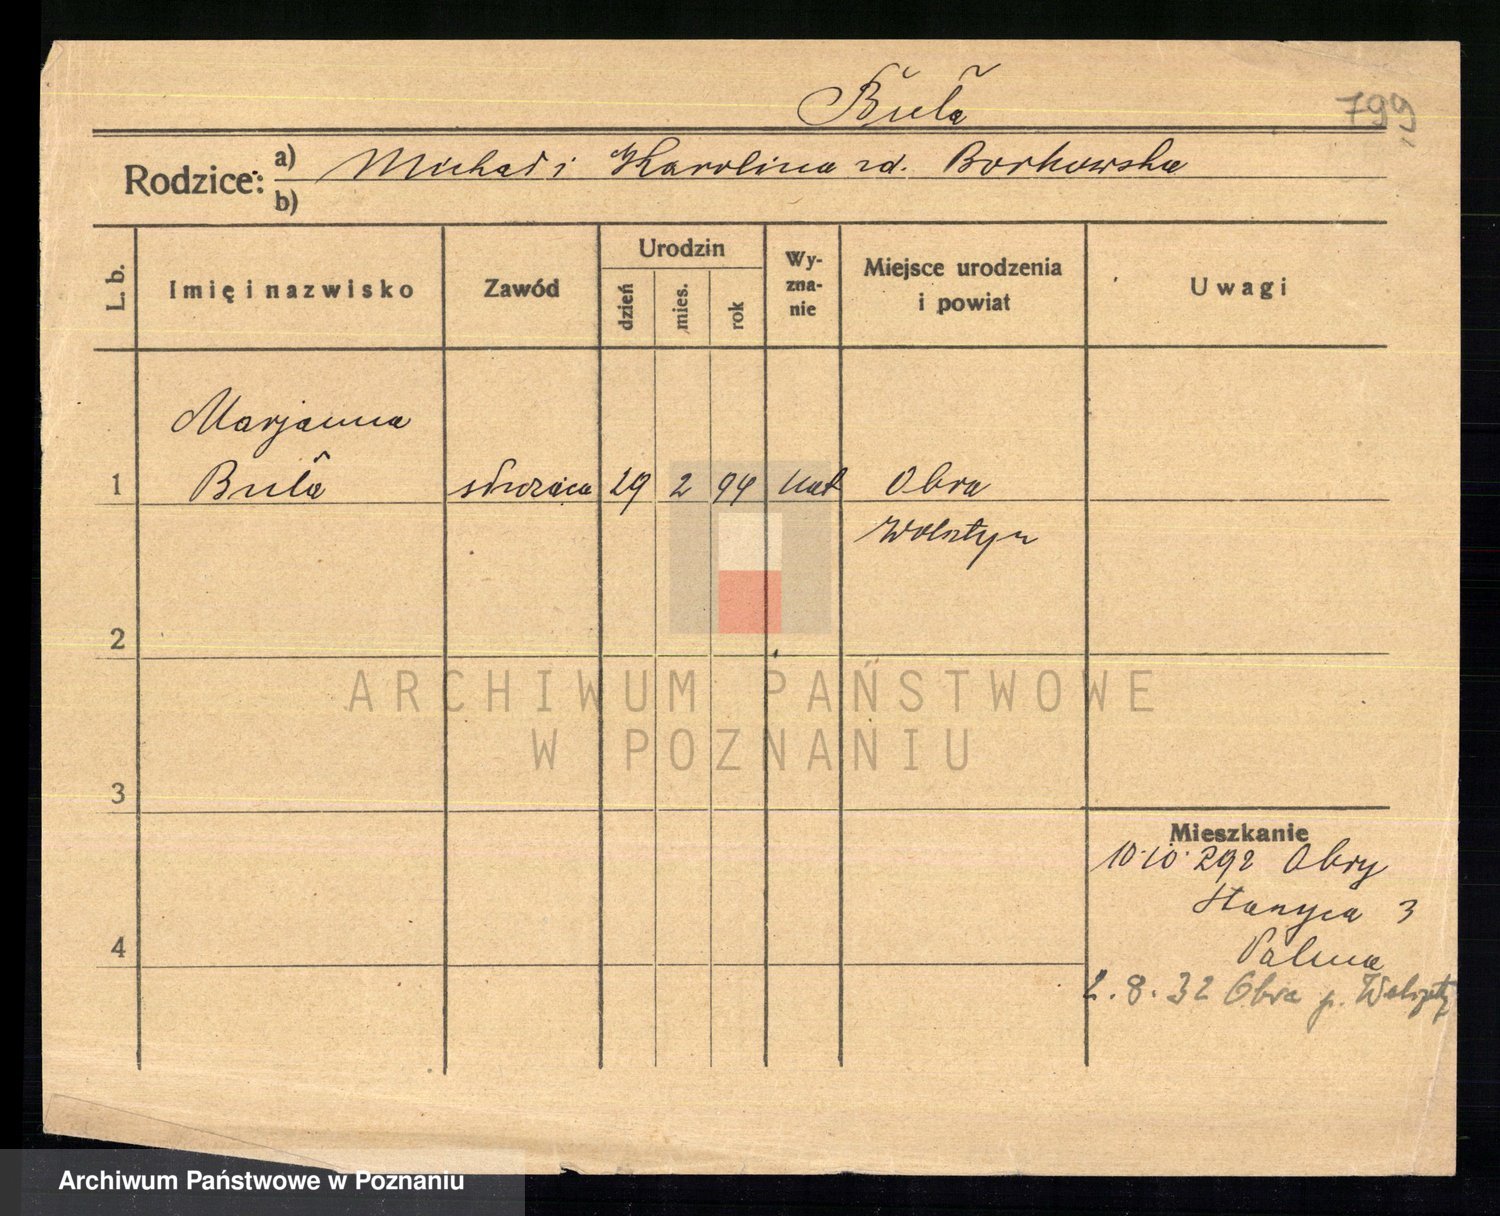 Buła
799
Rodzice: a) Michał i Karolina rd. Borkowska
b)
L. b.
Imię i nazwisko
Zawód
Urodzin
dzień
mies.
rok
Wy-
zna-
nie
Miejsce urodzenia
i powiat
Uwagi
Marjanna
1 Buła służąca 29 2 94 kat Obra
Wolsztyn
2
ARCHIWUM PAŃSTWOWE
W POZNANIU
3
Mieszkanie
10.10. Obry
3
4
2.8.32 Obra p.
Archiwum Państwowe w Poznaniu